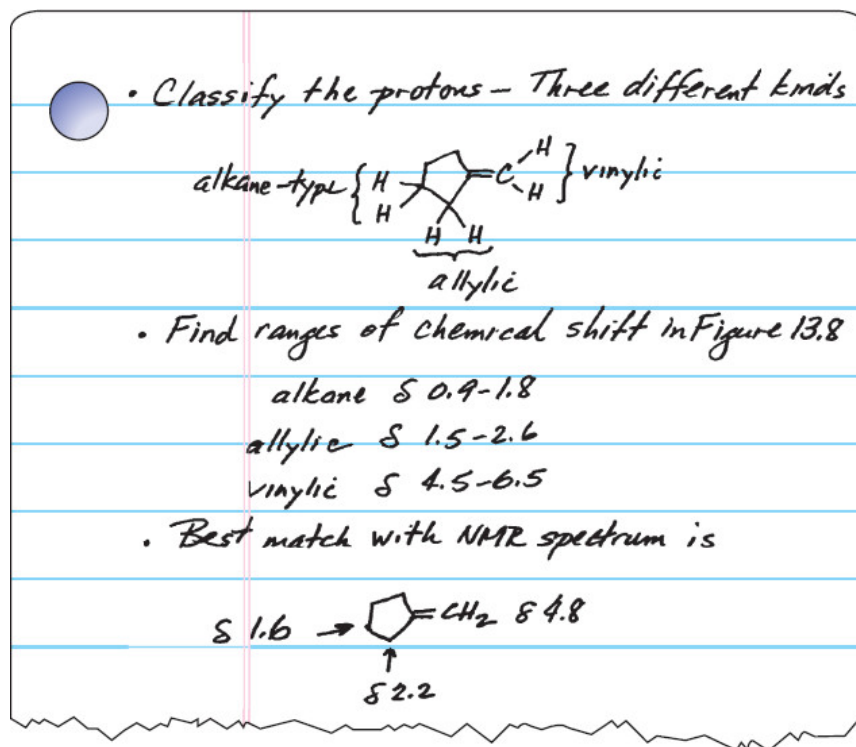 • Classify the protons – Three different kinds
alkane-type { H H
=C H H } vinylic
H H
allylic
• Find ranges of chemical shift in Figure 13.8
alkane δ 0.9-1.8
allylic δ 1.5-2.6
vinylic δ 4.5-6.5
• Best match with NMR spectrum is
δ 1.6 → =CH₂ δ 4.8
↑
δ 2.2